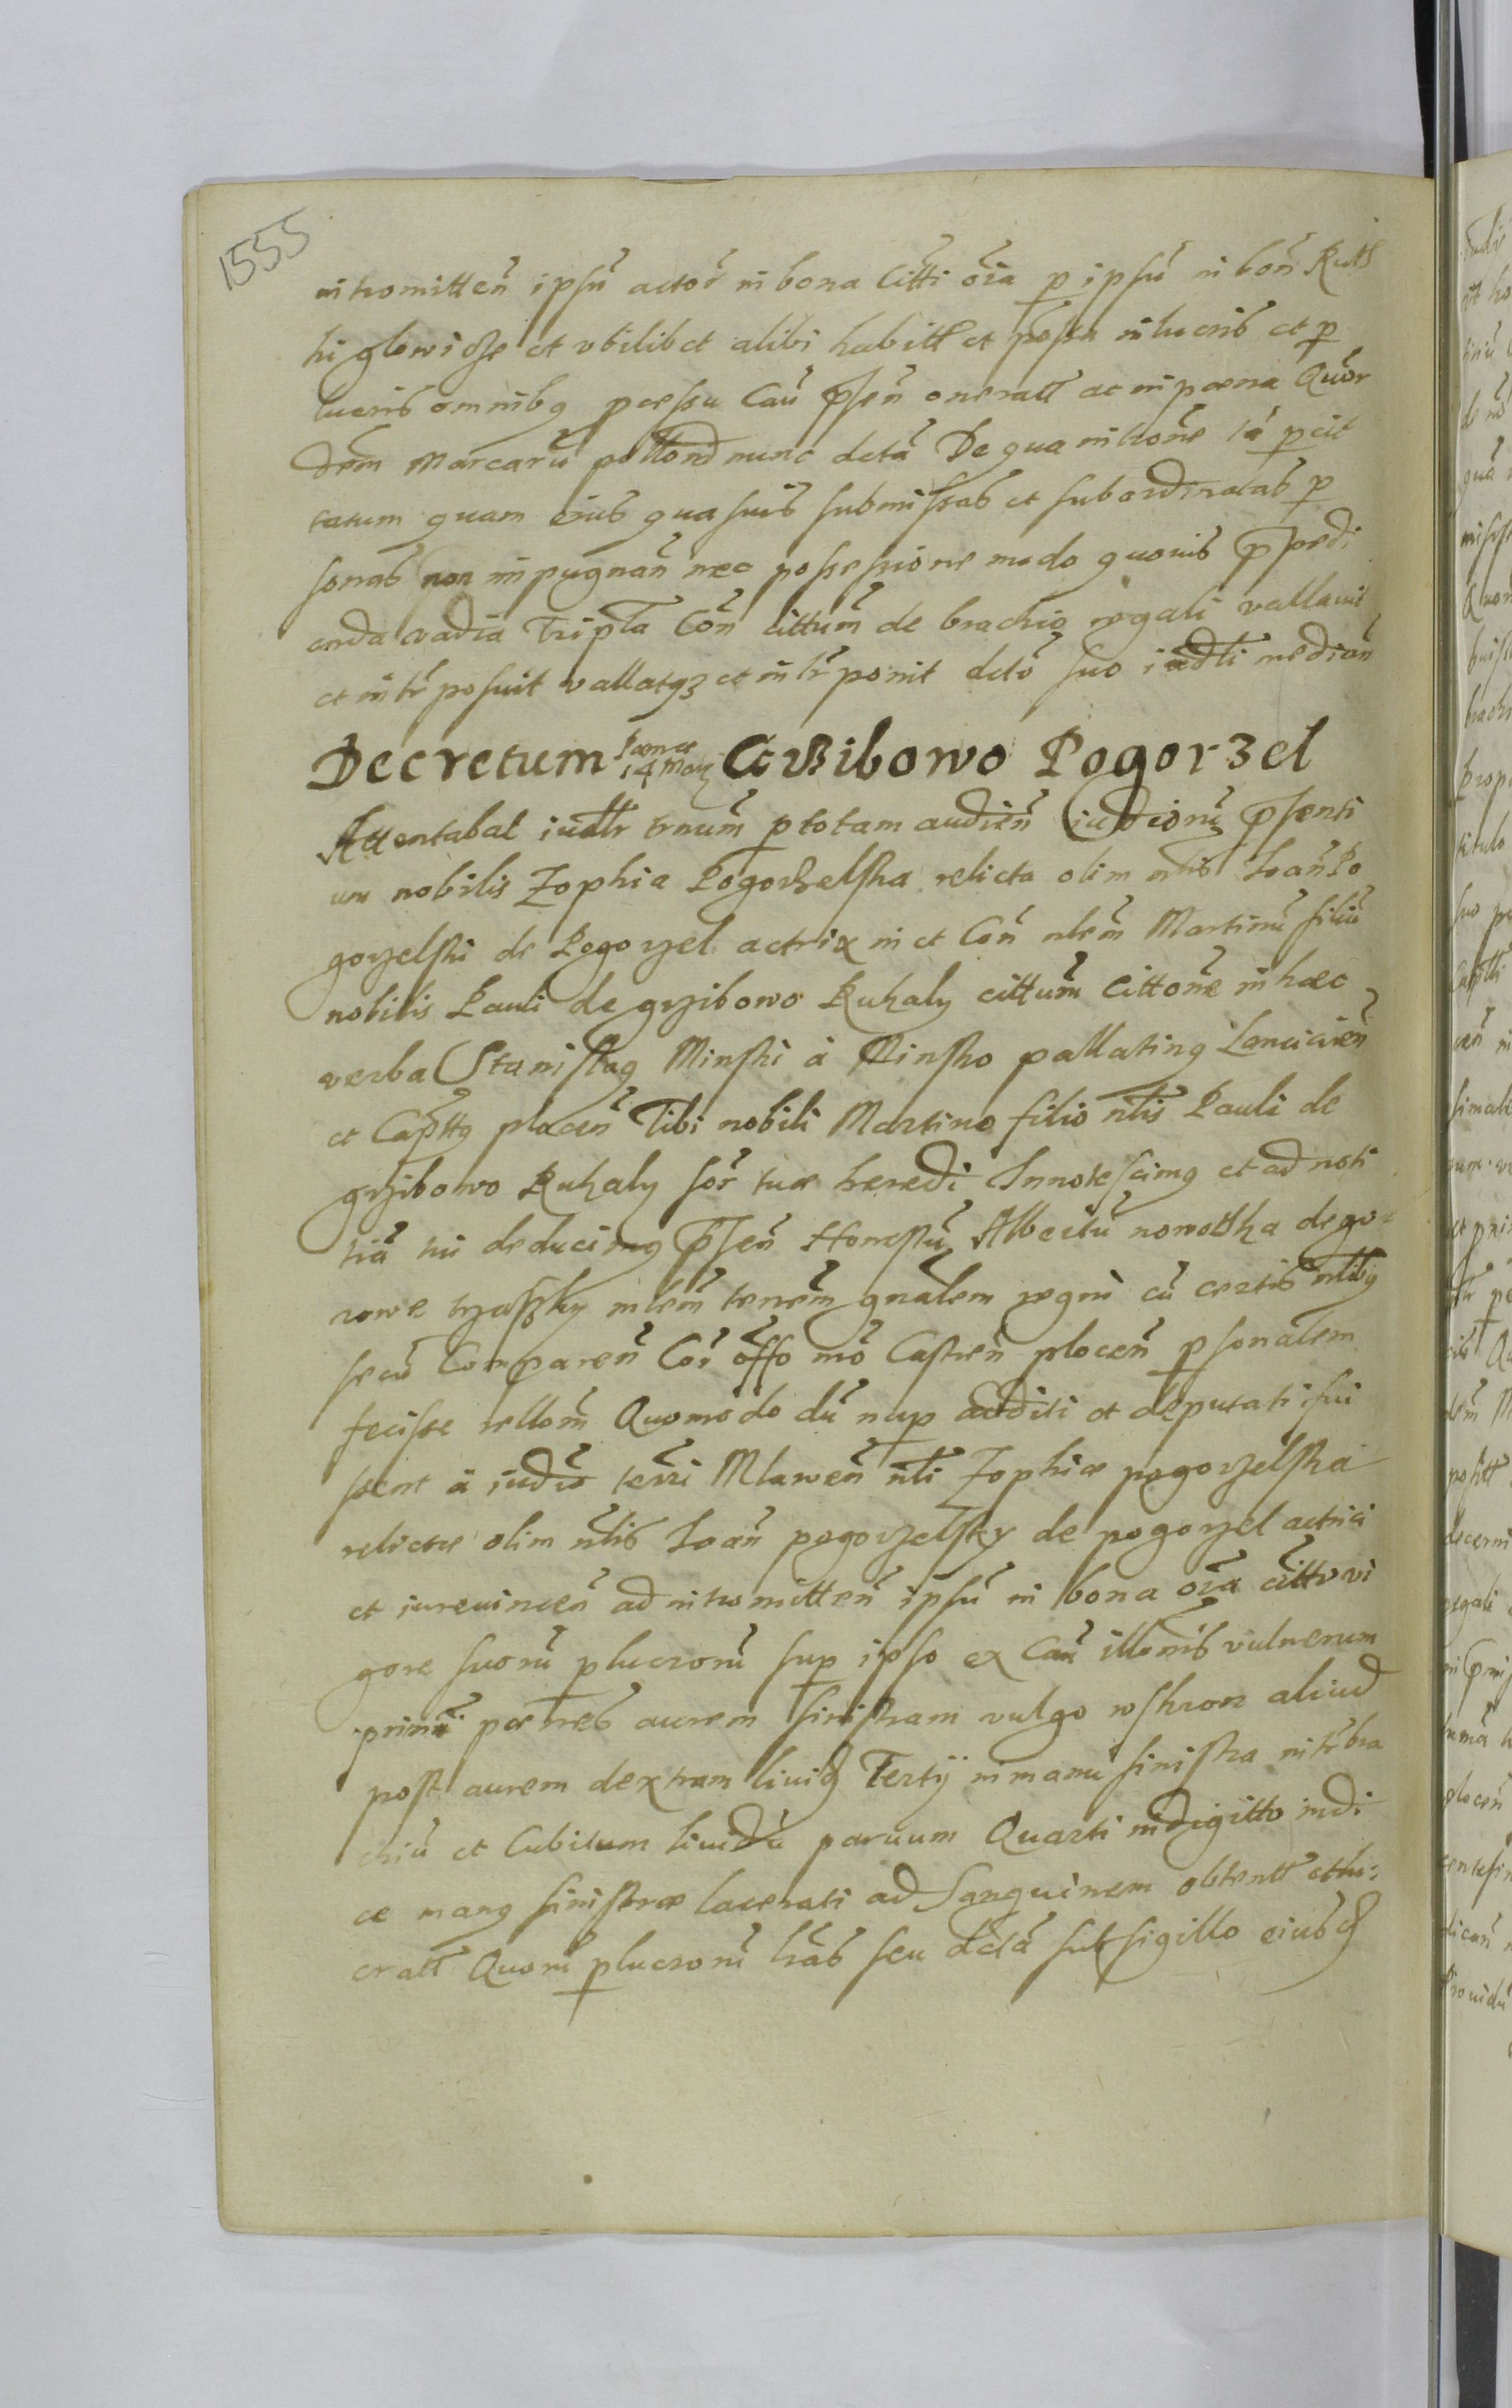 1555
intromitten ipsu actor in bona citti oia p ipsu in bon Ruth
ki glowicze et vbilibet alibi habitt et possa in lucris et p
lucris omnibq pcessu Cau psen oneratt ac in poena Quor
dem Marcaru pollond nunc deta De qua introne ta pcit
tatum quam eius qua suis submissas et subordinatas p
sonas non impugnan nec possessione modo quouis pspedi
enda vadia Tripla Con cittum de brachio regali vallauit
et intr posuit vallatqz et intr ponit deto suo iudtti median
Decretum Poenae 14 Maij Grzibowo Pogorzel
Attentabat iudtr trnum p totam audien iudicionu psenti
um nobilis Zophia Pogorzelska relicta olim nlis Ioan Po
gorzelski de Pogorzel actrix in et Con nlem Martinu filiu
nobilis Pauli de grzibowo Kuhaly cittum Cittone in haec
verba Stanislaq Minski à Minsko pallatinq Lancicien
et Capttq plocen Tibi nobili Martino filio nlis Pauli de
grzibowo Kuhaly sor tuae haeredi Innotescimq et ad noti
tia tui deducimq psen Honestu Albertu nowottka de go=
rowe trzasky mlem terrem gnalem regni cu certis nlibq
secu Comparen Cor offo mo Castren plocen psonalem
fecisse rellom Quomodo du nup additi et deputati fui
ssent à iudio terri Mlawen nli Zophiae pogorzelska
relictae olim nlis Ioan pogorzelsky de pogorzel actrici
et iureuincen ad intromitten ipsu in bona oia citto vi
gore suoru plucroru sup ipso ex Cau illonis vulnerum
primi penes aurem sinistram vulgo wskron aliud
post aurem dextram liuid Tertij in manu sinistra intr bra
chiu et Cubitum liuidu paruum Quarti in digitto indi
ce manq sinistrae lacerati ad sanguinem obtentt et lu=
cratt Quoru plucroru lras seu deta sub sigillo eiusd